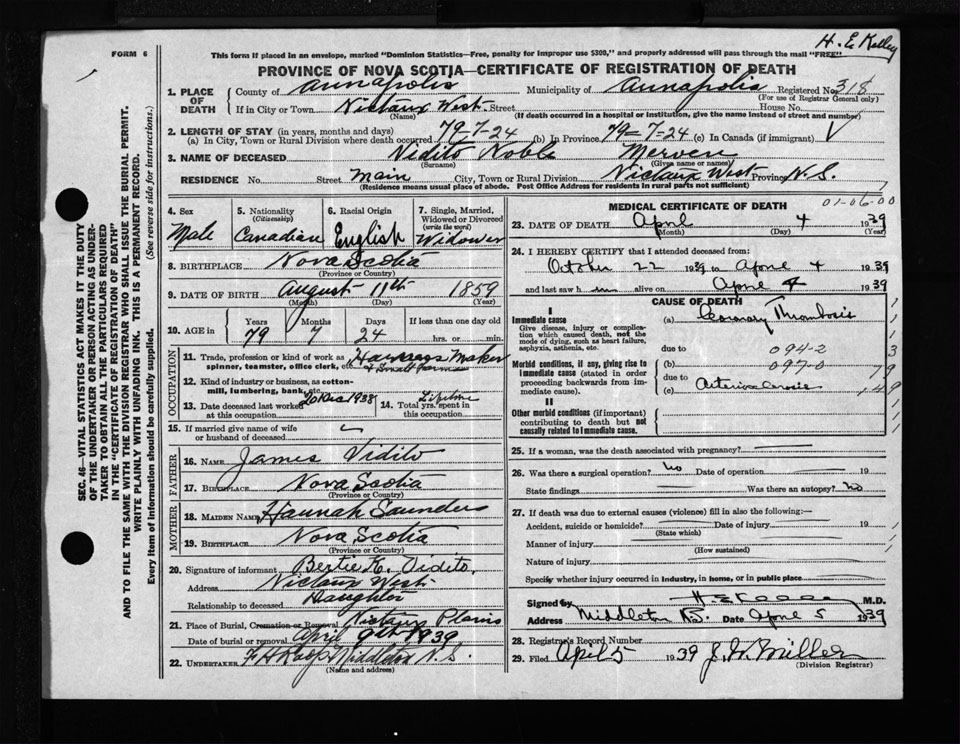 H. E. Kelley
FORM 6
This form if placed in an envelope, marked "Dominion Statistics—Free, penalty for improper use $300," and properly addressed will pass through the mail "FREE"
PROVINCE OF NOVA SCOTIA—CERTIFICATE OF REGISTRATION OF DEATH
1. PLACE OF DEATH County of Annapolis Municipality of Annapolis Registered No. 318
(For use of Registrar General only)
If in City or Town Nictaux West Street House No.
(Name) (If death occurred in a hospital or institution, give the name instead of street and number)
2. LENGTH OF STAY (in years, months and days)
(a) In City, Town or Rural Division where death occurred 79-7-24 (b) In Province 79-7-24 (c) In Canada (if immigrant)
3. NAME OF DECEASED Vidito Noble Merven
(Surname) (Given name or names)
RESIDENCE No. Street Main City, Town or Rural Division Nictaux West Province N.S.
(Residence means usual place of abode. Post Office Address for residents in rural parts not sufficient)
SEC. 46—VITAL STATISTICS ACT MAKES IT THE DUTY
OF THE UNDERTAKER OR PERSON ACTING AS UNDER-
TAKER TO OBTAIN ALL THE PARTICULARS REQUIRED
IN THE "CERTIFICATE OF REGISTRATION OF DEATH"
AND TO FILE THE SAME WITH THE DIVISION REGISTRAR WHO SHALL ISSUE THE BURIAL PERMIT.
WRITE PLAINLY WITH UNFADING INK. THIS IS A PERMANENT RECORD.
Every item of Information should be carefully supplied. (See reverse side for instructions.)
4. Sex Male
5. Nationality (Citizenship) Canadian
6. Racial Origin English
7. Single, Married, Widowed or Divorced (write the word) Widower
8. BIRTHPLACE Nova Scotia
(Province or Country)
9. DATE OF BIRTH August 11th 1859
(Month) (Day) (Year)
10. AGE in Years 79 Months 7 Days 24 If less than one day old hrs. or min.
OCCUPATION
11. Trade, profession or kind of work as spinner, teamster, office clerk, etc. Harness Maker & Small Farmer
12. Kind of industry or business, as cotton-mill, lumbering, bank, etc.
13. Date deceased last worked at this occupation 20 Dec 1938
14. Total yrs. spent in this occupation Lifetime
15. If married give name of wife or husband of deceased
FATHER
16. NAME James Vidito
17. BIRTHPLACE Nova Scotia
(Province or Country)
MOTHER
18. MAIDEN NAME Hannah Saunders
19. BIRTHPLACE Nova Scotia
(Province or Country)
20. Signature of informant Bertie K. Vidito
Address Nictaux West
Relationship to deceased Daughter
21. Place of Burial, Cremation or Removal Nictaux Plains
Date of burial or removal April 9th 1939
22. UNDERTAKER Middleton N.S.
MEDICAL CERTIFICATE OF DEATH
01-06-00
23. DATE OF DEATH April 4 1939
(Month) (Day) (Year)
24. I HEREBY CERTIFY that I attended deceased from:
October 22 1939 to April 4 1939
and last saw h im alive on April 4 1939
CAUSE OF DEATH
I
Immediate cause (a) Coronary Thrombosis
Give disease, injury or complication which caused death, not the mode of dying, such as heart failure, asphyxia, asthenia, etc.
due to 094-2
Morbid conditions, if any, giving rise to immediate cause (stated in order proceeding backwards from immediate cause).
(b) 097-0
due to
(c)
II
Other morbid conditions (if important) contributing to death but not causally related to Immediate cause.
25. If a woman, was the death associated with pregnancy?
26. Was there a surgical operation? No Date of operation 19
State findings Was there an autopsy? no
27. If death was due to external causes (violence) fill in also the following:—
Accident, suicide or homicide? Date of injury 19
(State which)
Manner of injury
(How sustained)
Nature of injury
Specify whether injury occurred in industry, in home, or in public place
Signed by H E Kelley M.D.
Address Middleton N.S. Date April 5 1939
28. Registrar's Record Number
29. Filed April 5 1939 J. W. Miller
(Division Registrar)